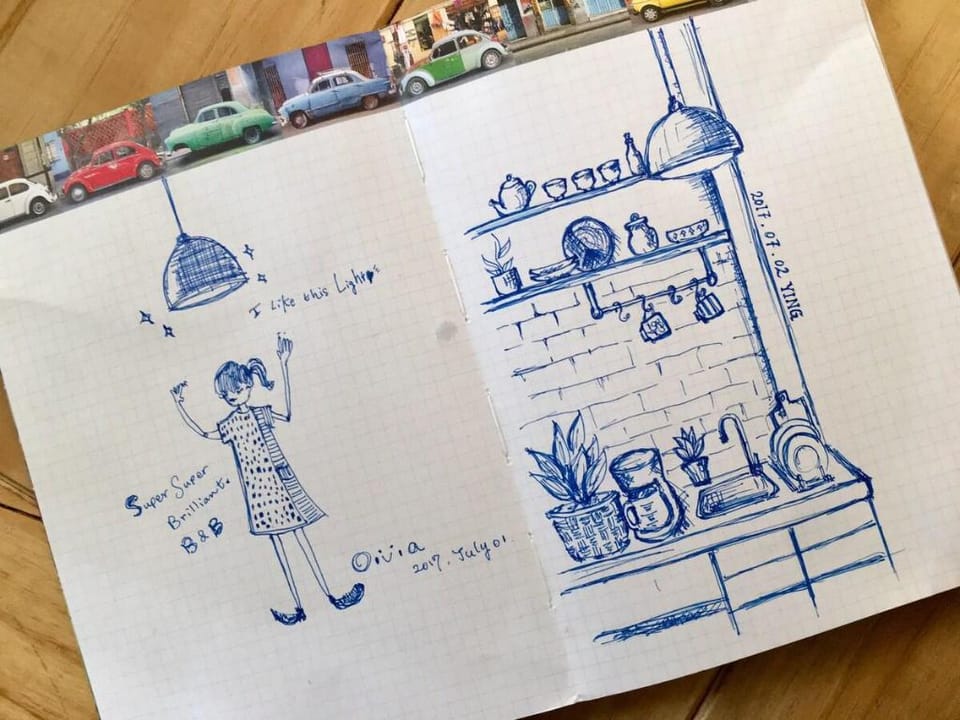 I Like this Light
Super Super
Brilliant.
B&B
Olivia
2017. July 01.
2017.07.02 YING